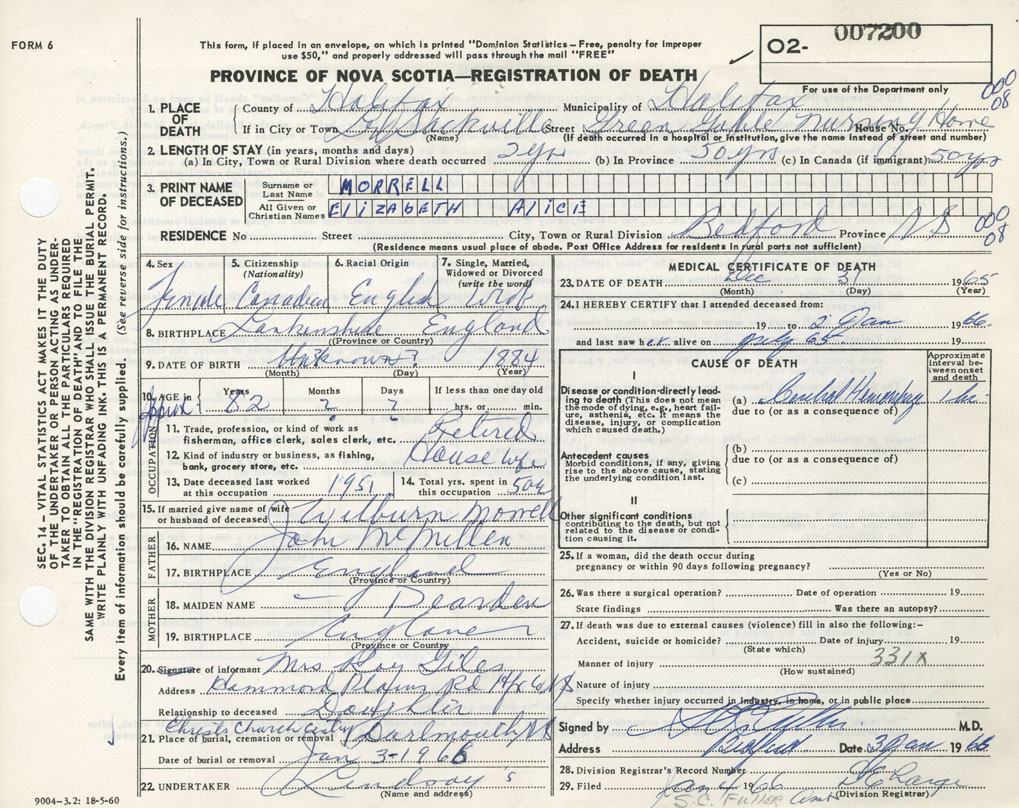 FORM 6
This form, if placed in an envelope, on which is printed "Dominion Statistics—Free, penalty for improper
use $50," and properly addressed will pass through the mail "FREE"
PROVINCE OF NOVA SCOTIA—REGISTRATION OF DEATH
O2- 007200
For use of the Department only
000
08
1. PLACE OF DEATH
County of Halifax Municipality of Halifax
If in City or Town Sackville Street Green Gable Nursing Home House No.
(Name) (If death occurred in a hospital or institution, give the name instead of street and number)
2. LENGTH OF STAY (in years, months and days)
(a) In City, Town or Rural Division where death occurred 2 yrs (b) In Province 50 yrs (c) In Canada (if immigrant) 50 yrs
3. PRINT NAME OF DECEASED
Surname or Last Name MORRELL
All Given or Christian Names ELIZABETH ALICE
000
08
RESIDENCE No Street City, Town or Rural Division Bedford Province NS
(Residence means usual place of abode. Post Office Address for residents in rural parts not sufficient)
SEC. 14 – VITAL STATISTICS ACT MAKES IT THE DUTY
OF THE UNDERTAKER OR PERSON ACTING AS UNDER-
TAKER TO OBTAIN ALL THE PARTICULARS REQUIRED
IN THE "REGISTRATION OF DEATH" AND TO FILE THE
SAME WITH THE DIVISION REGISTRAR WHO SHALL ISSUE THE BURIAL PERMIT.
WRITE PLAINLY WITH UNFADING INK. THIS IS A PERMANENT RECORD.
Every item of information should be carefully supplied. (See reverse side for instructions.)
4. Sex Female
5. Citizenship (Nationality) Canadian
6. Racial Origin English
7. Single, Married, Widowed or Divorced (write the word) Wid
8. BIRTHPLACE England
(Province or Country)
9. DATE OF BIRTH Unknown? 1884
(Month) (Day) (Year)
10. AGE in Approx Years 82 Months ? Days ? If less than one day old hrs. or min.
OCCUPATION
11. Trade, profession, or kind of work as
fisherman, office clerk, sales clerk, etc. Retired
12. Kind of industry or business, as fishing,
bank, grocery store, etc. Housewife
13. Date deceased last worked
at this occupation 1951
14. Total yrs. spent in
this occupation 50
15. If married give name of wife
or husband of deceased Wilburn Morrell
FATHER
16. NAME John McMillen
17. BIRTHPLACE England
(Province or Country)
MOTHER
18. MAIDEN NAME Dearden
19. BIRTHPLACE England
(Province or Country)
20. Signature of informant Mrs Roy Giles
Address Hammond Plains Rd Hfx Co NS
Relationship to deceased Daughter
Christ Church
21. Place of burial, cremation or removal Dartmouth NS
Date of burial or removal Jan 3-1966
22. UNDERTAKER Lindsay's
(Name and address)
9004-3.2: 18-5-60
MEDICAL CERTIFICATE OF DEATH
23. DATE OF DEATH Dec 31 1965
(Month) (Day) (Year)
24. I HEREBY CERTIFY that I attended deceased from:
19 to 2 Jan 1966
and last saw her alive on July 65 19
CAUSE OF DEATH
Approximate interval between onset and death
I
Disease or condition directly lead-
ing to death (This does not mean
the mode of dying, e.g., heart fail-
ure, asthenia, etc. It means the
disease, injury, or complication
which caused death.)
(a) Cerebral Hemorrhage 1 hr
due to (or as a consequence of)
Antecedent causes
Morbid conditions, if any, giving
rise to the above cause, stating
the underlying condition last.
(b)
due to (or as a consequence of)
(c)
II
Other significant conditions
contributing to the death, but not
related to the disease or condi-
tion causing it.
25. If a woman, did the death occur during
pregnancy or within 90 days following pregnancy?
(Yes or No)
26. Was there a surgical operation? Date of operation 19
State findings Was there an autopsy?
27. If death was due to external causes (violence) fill in also the following:–
Accident, suicide or homicide? Date of injury 19
(State which)
331X
Manner of injury
(How sustained)
Nature of injury
Specify whether injury occurred in industry, in home, or in public place
Signed by M.D.
Address Bedford Date 3 Jan 1966
28. Division Registrar's Record Number
29. Filed Jan 4 1966
(Division Registrar)
S.C. Fuller